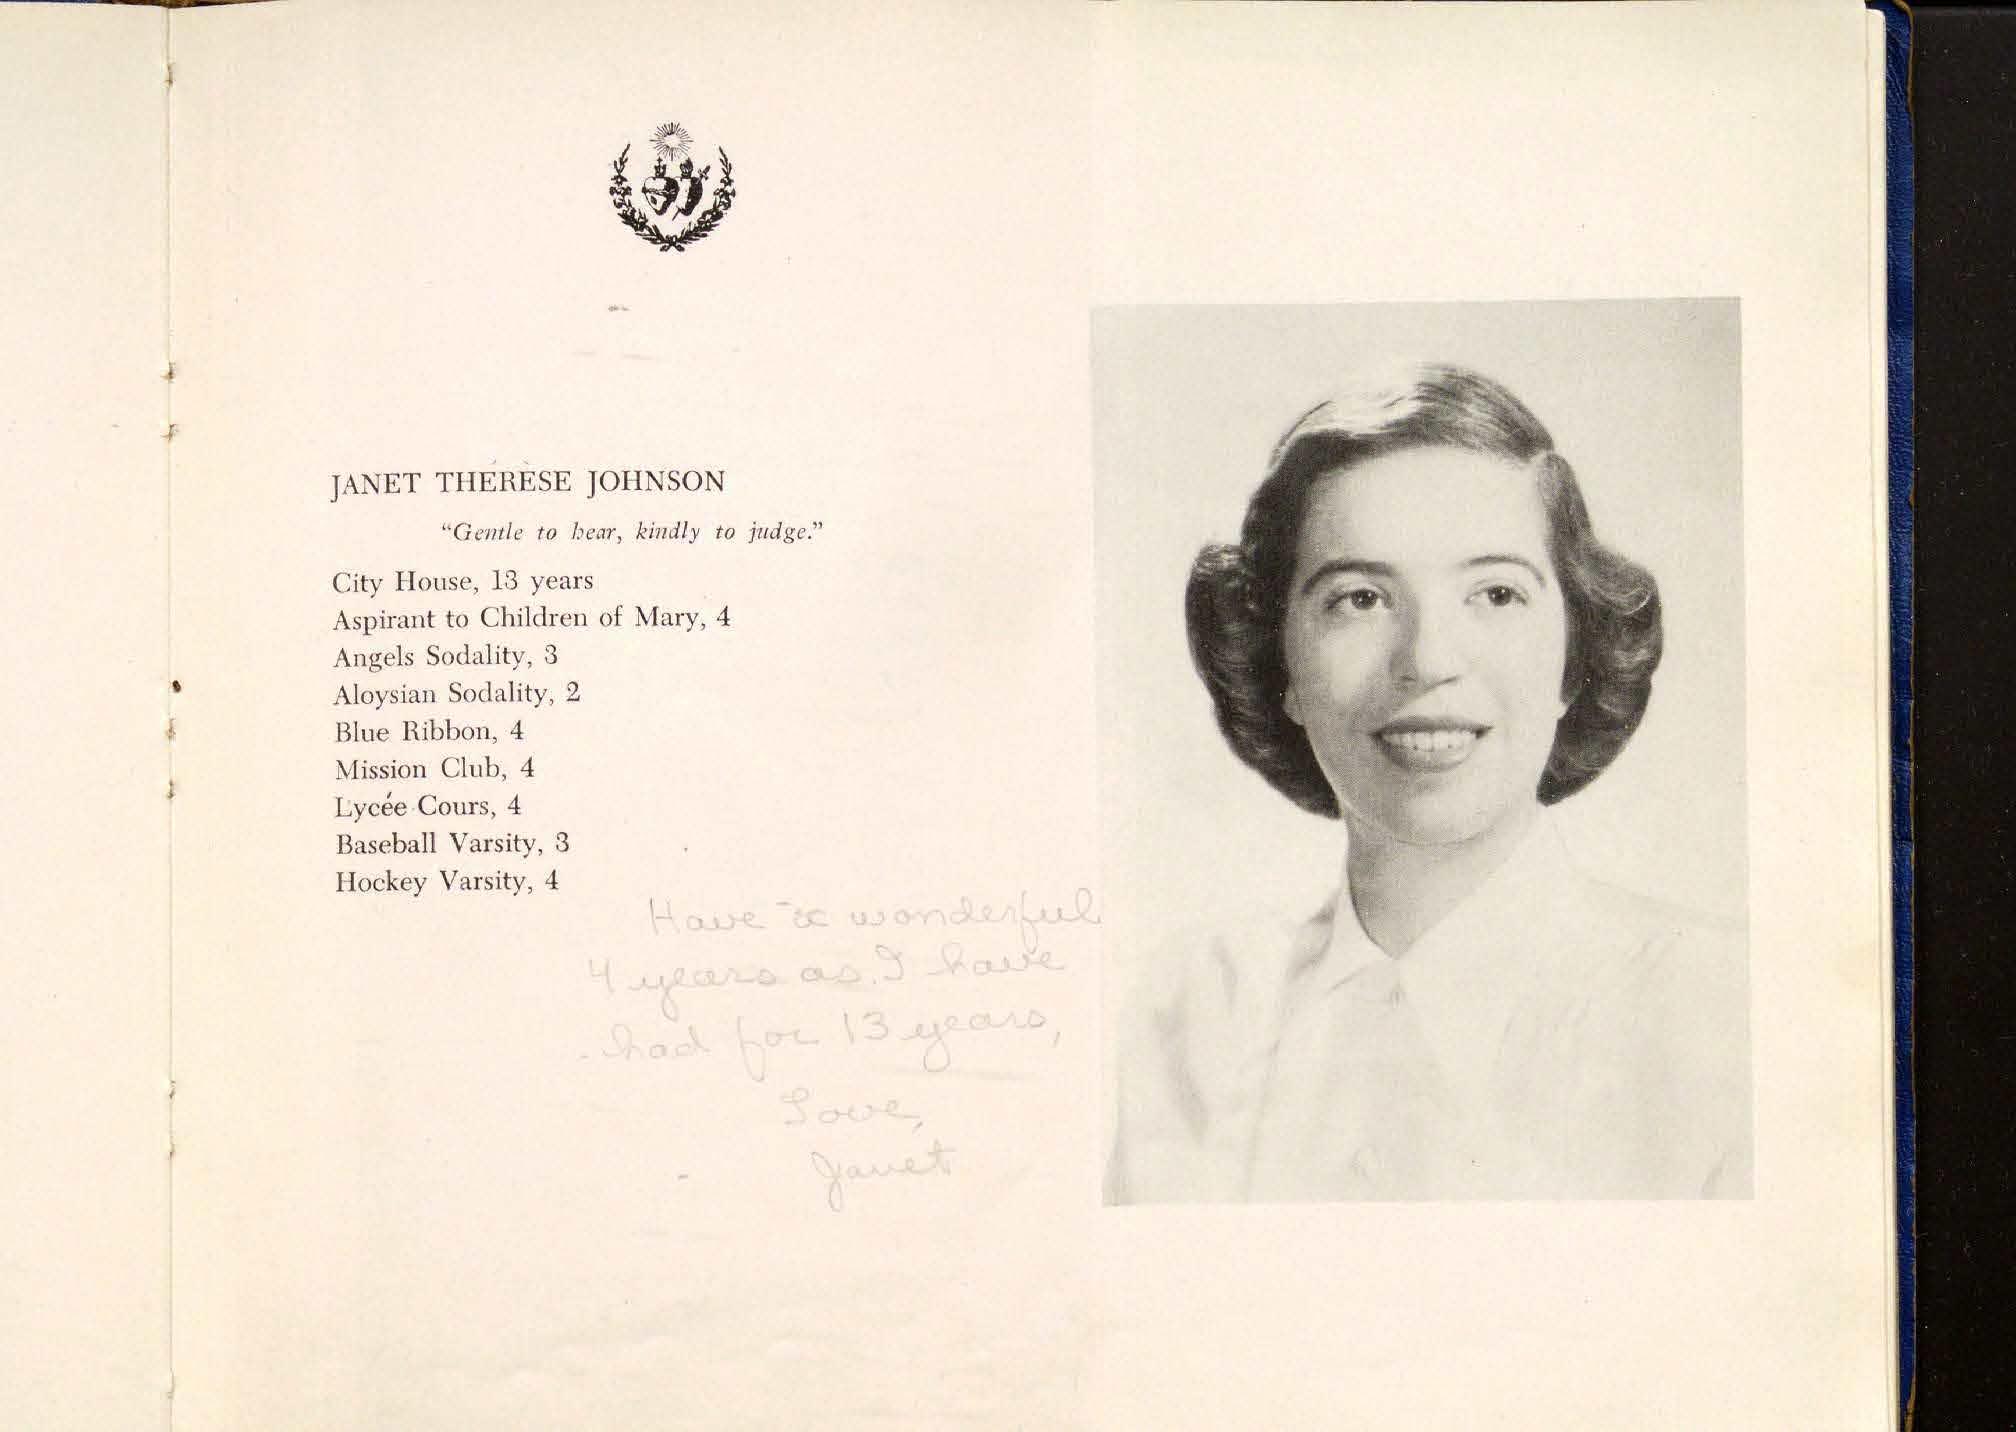 JANET THÉRÈSE JOHNSON
"Gentle to hear, kindly to judge."
City House, 13 years
Aspirant to Children of Mary, 4
Angels Sodality, 3
Aloysian Sodality, 2
Blue Ribbon, 4
Mission Club, 4
Lycée Cours, 4
Baseball Varsity, 3
Hockey Varsity, 4
Have a wonderful
4 years as I have
had for 13 years,
Love,
Janet